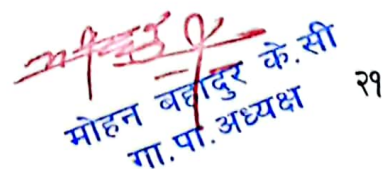 मोहन बहादुर के.सी
गा.पा.अध्यक्ष
२१